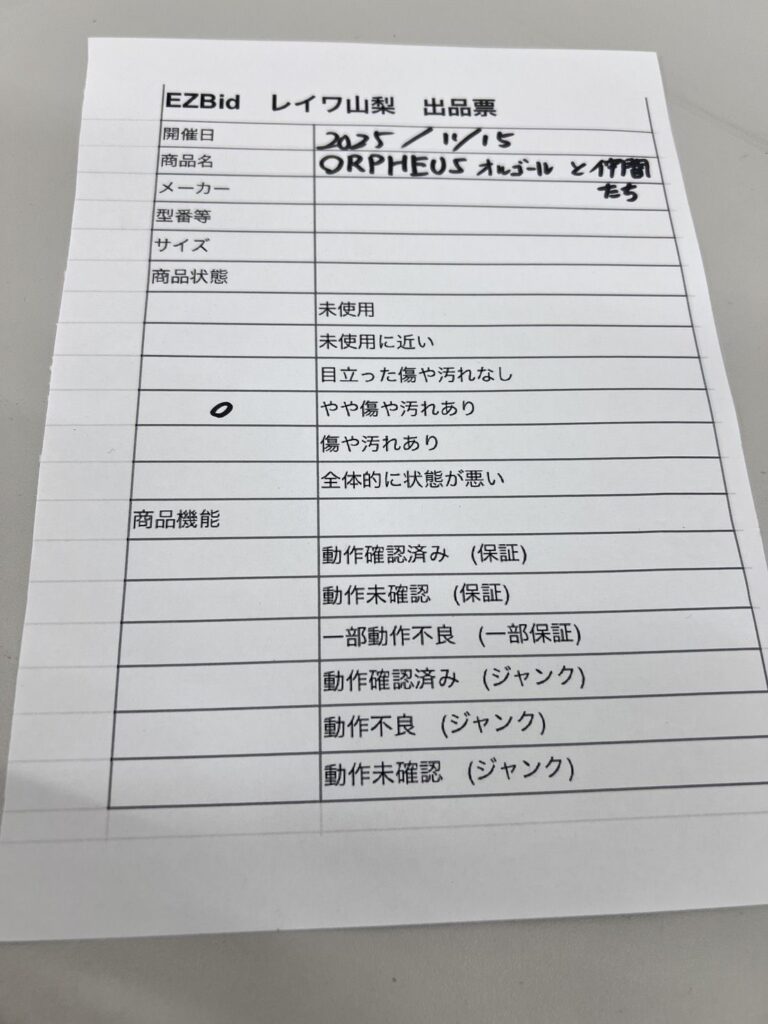 EZBid レイワ山梨 出品票
開催日 2025/11/15
商品名 ORPHEUS オルゴール と仲間
メーカー たち
型番等
サイズ
商品状態
未使用
未使用に近い
目立った傷や汚れなし
○ やや傷や汚れあり
傷や汚れあり
全体的に状態が悪い
商品機能
動作確認済み (保証)
動作未確認 (保証)
一部動作不良 (一部保証)
動作確認済み (ジャンク)
動作不良 (ジャンク)
動作未確認 (ジャンク)